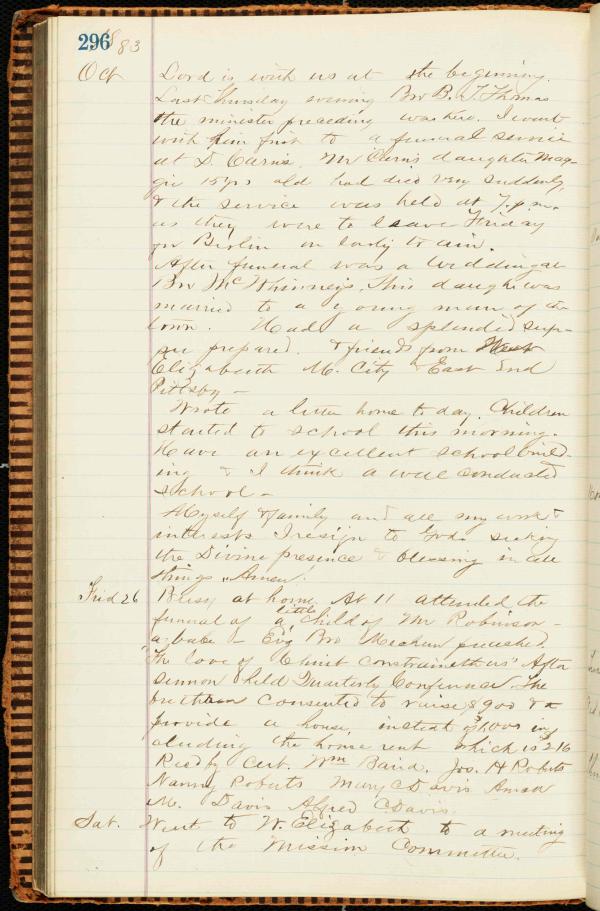 296
83
Oct Lord is with us at the beginning.
Last Thursday evening Bro B. T. Thomas
the minister preceding was here. I went
with him first to a funeral service
at D. Carns. Mr Carns daughter Mag-
gie 15 yrs old had died very suddenly,
& the service was held at 7. p.m.
as they were to leave Friday
for Berlin on early train.
After funeral was a wedding at
Bro McWhinney's, This daught was
married to a young man of the
town. Had a splended sup-
per prepared. & friends from West
Elizabeth M. City & East End
Pittsbg —
Wrote a letter home to day. Children
started to school this morning.
Have an excellent school build-
ing & I think a well conducted
school —
Myself & family and all my work &
interests I resign to God seeking
the Divine presence & blessing in all
things. Amen!
Frid 26 Busy at home. At 11 attended the
funeral of a little child of Mr Robinson —
a babe — Evg Bro Mechem preached.
"The love of Christ constraineth us" After
sermon held Quarterly Conference. The
brethren consented to raise $900 & to
provide a house, instead of $1,000 in
cluding the house rent which is $216
Recd by Cert. Wm Baird. Jos. H Roberts
Nancy Roberts Mary C Davis
M. Davis Alfred C Davis.
Sat. Went to W. Elizabeth to a meeting
of the Mission Committee.